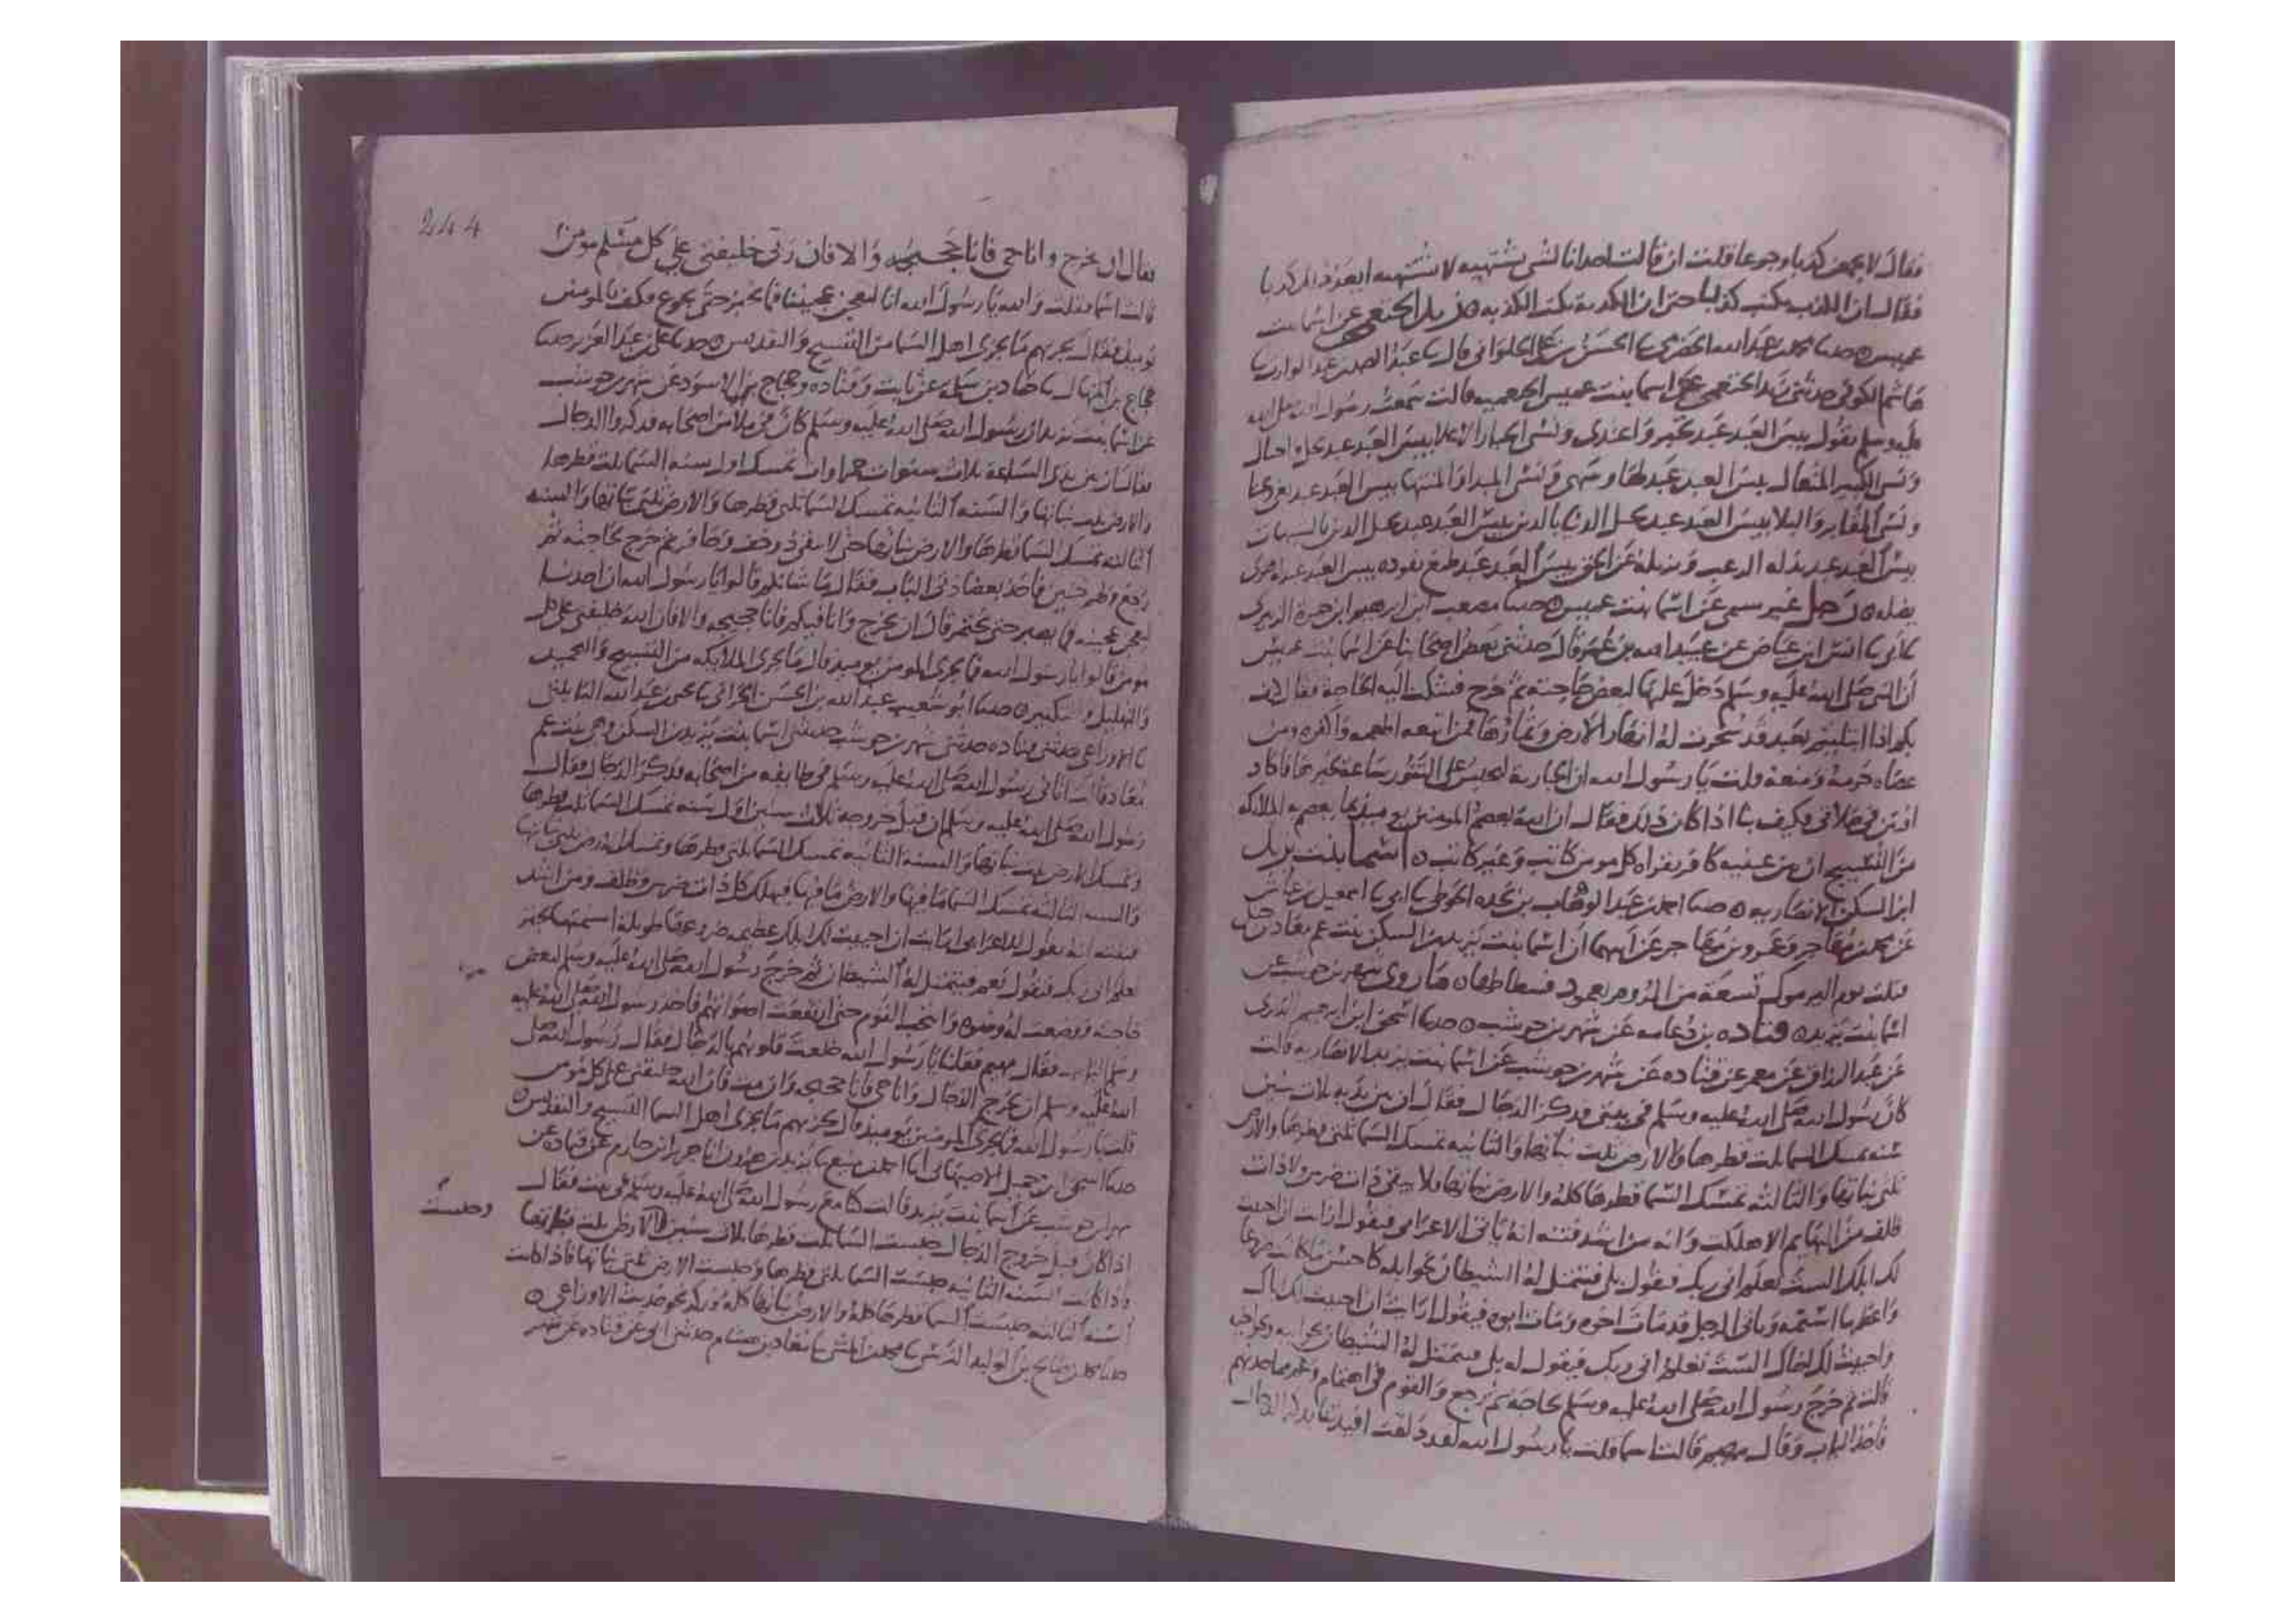 فقال لا تجمعن كذبا وجوعا فقلت ان قالت احدانا لشى تشتهيه لا تشتهيه ايعد ذلك كذبا
فقال ان الكذب يكتب كذبا حتى ان الكذبة تكتب الكذيبه زيد الخثعمي عن اسما بنت
عميس حدثنا محمد بن عبد الله الحضرمي ثنا الحسن بن علي الحلواني قال ثنا عبد الصمد بن عبد الوارث ثنا
هاشم الكوفي حدثني زيد الخثعمي عن اسما بنت عميس الخثعميه قالت سمعت رسول الله صلى الله
عليه وسلم يقول بيس العبد عبد تجبر واعتدى ونسى الجبار الاعلا بيس العبد عبد تخيل واختال
ونسى الكبير المتعال بيس العبد عبد لها وسهى ونسى المبدا والمنتها بيس العبد عبد بغى وعتا
ونسى المقابر والبلا بيس العبد عبد يختل الدنيا بالدين بيس العبد عبد يختل الدين بالشبهات
بيس العبد عبد يذله الرعب ويزيله عن الحق بيس العبد عبد طمع يقوده بيس العبد عبد هوى
يضله رجل غير سمي عن اسما بنت عميس حدثنا مصعب ابن ابرهيم ابن حمزة الزبيري
ثنا ابي ثنا انس ابن عياض عن عبيد الله بن عمر قال حدثني بعض اصحابنا عن اسما بنت عميس
ان النبي صلى الله عليه وسلم دخل عليها لبعض حاجته ثم خرج فشكت اليه الحاجة فقال كيف
بكم اذا ابتليتم بعبد قد سخرت له انهار الارض وثمارها فمن اتبعه اطعمه واكفره ومن
عصاه حرمه ومنعه قلت يا رسول الله ان الجارية لتجلس على التنور ساعة لخبزها فاكاد
افتتن في صلاتي فكيف بنا اذا كان ذلك فقال ان الله يعصم المومنين يوميذ بما يعصم به الملايكه
من التسبيح ان بين عينيه كافر يقراه كل مومن كاتب وغير كاتب اسما بنت يزيد
ابن السكن الانصاريه حدثنا احمد بن عبد الوهاب بن نجده الحوطي ثنا ابي ثنا اسمعيل بن عياش
عن محمد بن مهاجر وعمرو بن مهاجر عن ابيهما ان اسما بنت يزيد بن السكن بنت عم معاذ بن جبل
قتلت يوم اليرموك تسعة من الروم بعمود فسطاطها ما روى شهر بن حوشب عن
اسما بنت يزيد قتاده بن دعامه عن شهر بن حوشب حدثنا اسحق ابن ابرهيم الدبري
عن عبد الرزاق عن معمر عن قتاده عن شهر بن حوشب عن اسما بنت يزيد الانصاريه قالت
كان رسول الله صلى الله عليه وسلم في بيتي فذكر الدجال فقال ان بين يديه ثلاث سنين
سنه تمسك السما ثلث قطرها والارض ثلث نباتها والثانيه تمسك السما ثلثي قطرها والارض
ثلثي نباتها والثالثه تمسك السما قطرها كله والارض نباتها كله فلا يبقى ذات ضرس ولا ذات
ظلف من البهايم الا هلكت وانه من اشد فتنته انه ياتي الاعرابي فيقول ارايت ان احييت
لك ابلك الست تعلم اني ربك فيقول بلى فيتمثل له الشيطان نحو ابله كاحسن ما كانت ضروعا
واعظمها اسنمه وياتي الرجل قد مات اخوه ومات ابوه فيقول ارايت ان احييت لك اباك
واحييت لك اخاك الست تعلم اني ربك فيقول له بلى فيتمثل له الشيطان نحو ابيه ونحو اخيه
قالت ثم خرج رسول الله صلى الله عليه وسلم لحاجة ثم رجع والقوم في اهتمام وغم مما حدثهم
فاخذ الباب وقال مهيم قالت اسما قلت يا رسول الله لقد خلعت افيدتنا بذكر الدجال
244
فقال ان يخرج وانا حي فانا حجيجه والا فان ربي خليفتي على كل مسلم مومن
قالت اسما فقلت والله يا رسول الله انا لنعجن عجيننا فما نخبز حتى نجوع فكيف بالمومنين
يوميذ فقال يجزيهم ما يجزي اهل السما من التسبيح والتقديس حدثنا علي بن عبد العزيز حدثنا
حجاج بن المنهال ثنا حماد بن سلمة عن ثابت وقتاده وحجاج بن الاسود عن شهر بن حوشب
عن اسما بنت يزيد ان رسول الله صلى الله عليه وسلم كان في ملا من اصحابه فذكروا الدجال
فقال ان بين يدي الساعة ثلاث سنوات تمسك اول سنه السما ثلث قطرها
والارض ثلث نباتها والسنه الثانيه تمسك السما ثلثي قطرها والارض ثلثي نباتها والسنه
الثالثه تمسك السما قطرها والارض نباتها حتى لا يبقى ذو خف وحافر ثم خرج لحاجته ثم
رجع فاخذ بعضادتي الباب فقال ما شانكم قالوا يا رسول الله ان احدنا
ليعجن عجينه فما يصبر حتى يختمر قال ان يخرج وانا فيكم فانا حجيجه والا فان الله خليفتي على كل
مومن قالوا يا رسول الله فما يجزي المومنين يوميذ قال ما يجزي الملايكه من التسبيح والتحميد
والتهليل والتكبير حدثنا ابو شعيب عبد الله بن الحسن الحراني ثنا يحيى بن عبد الله البابلتي
ثنا الاوزاعي حدثني قتاده حدثني شهر بن حوشب حدثتني اسما بنت يزيد بن السكن وهي بنت عم
معاذ قالت اتاني رسول الله صلى الله عليه وسلم في طايفه من اصحابه فذكر الدجال فقال
رسول الله صلى الله عليه وسلم ان قبل خروجه ثلاث سنين اول سنه تمسك السما ثلث قطرها
وتمسك الارض ثلث نباتها والسنه الثانيه تمسك السما ثلثي قطرها وتمسك الارض ثلثي نباتها
والسنه الثالثه تمسك السما ما فيها والارض ما فيها فيهلك كل ذات ضرس وظلف ومن اشد
فتنته انه يقول للاعرابي ارايت ان احييت لك ابلك عظيمه ضروعها طويلة اسنمتها
تعلم اني ربك فيقول نعم فيتمثل له الشيطان ثم خرج رسول الله صلى الله عليه وسلم لبعض
حاجته ووضعت له وضوه وانتحب القوم حتى ارتفعت اصواتهم فاخذ رسول الله صلى الله عليه
وسلم الباب فقال مهيم فقلنا يا رسول الله خلعت قلوبهم بالدجال فقال رسول الله صلى
الله عليه وسلم ان يخرج الدجال وانا حي فانا حجيجه وان مت فان الله خليفتي على كل مومن
قلت يا رسول الله فما يجزي المومنين يوميذ قال يجزيهم ما يجزي اهل السما التسبيح والتقديس
حدثنا اسحق ابن جميل الاصبهاني انا احمد بن منيع ثنا يزيد بن هرون انا جرير ابن حازم عن قتاده عن
شهر بن حوشب عن اسما بنت يزيد قالت كنا مع رسول الله صلى الله عليه وسلم في بيت فقال
اذا كان قبل خروج الدجال حبست السما ثلث قطرها ثلاث سنين والارض ثلث نباتها
واذا كانت السنه الثانيه حبست السما ثلثي قطرها وحبست الارض ثلثي نباتها فاذا كانت
السنه الثالثه حبست السما قطرها كله والارض نباتها كله وذكر نحو حديث الاوزاعي
حدثنا محمد بن صالح بن الوليد النرسي ثنا محمد بن المثنى ثنا معاذ بن هشام حدثني ابي عن قتاده عن شهر
وحبست